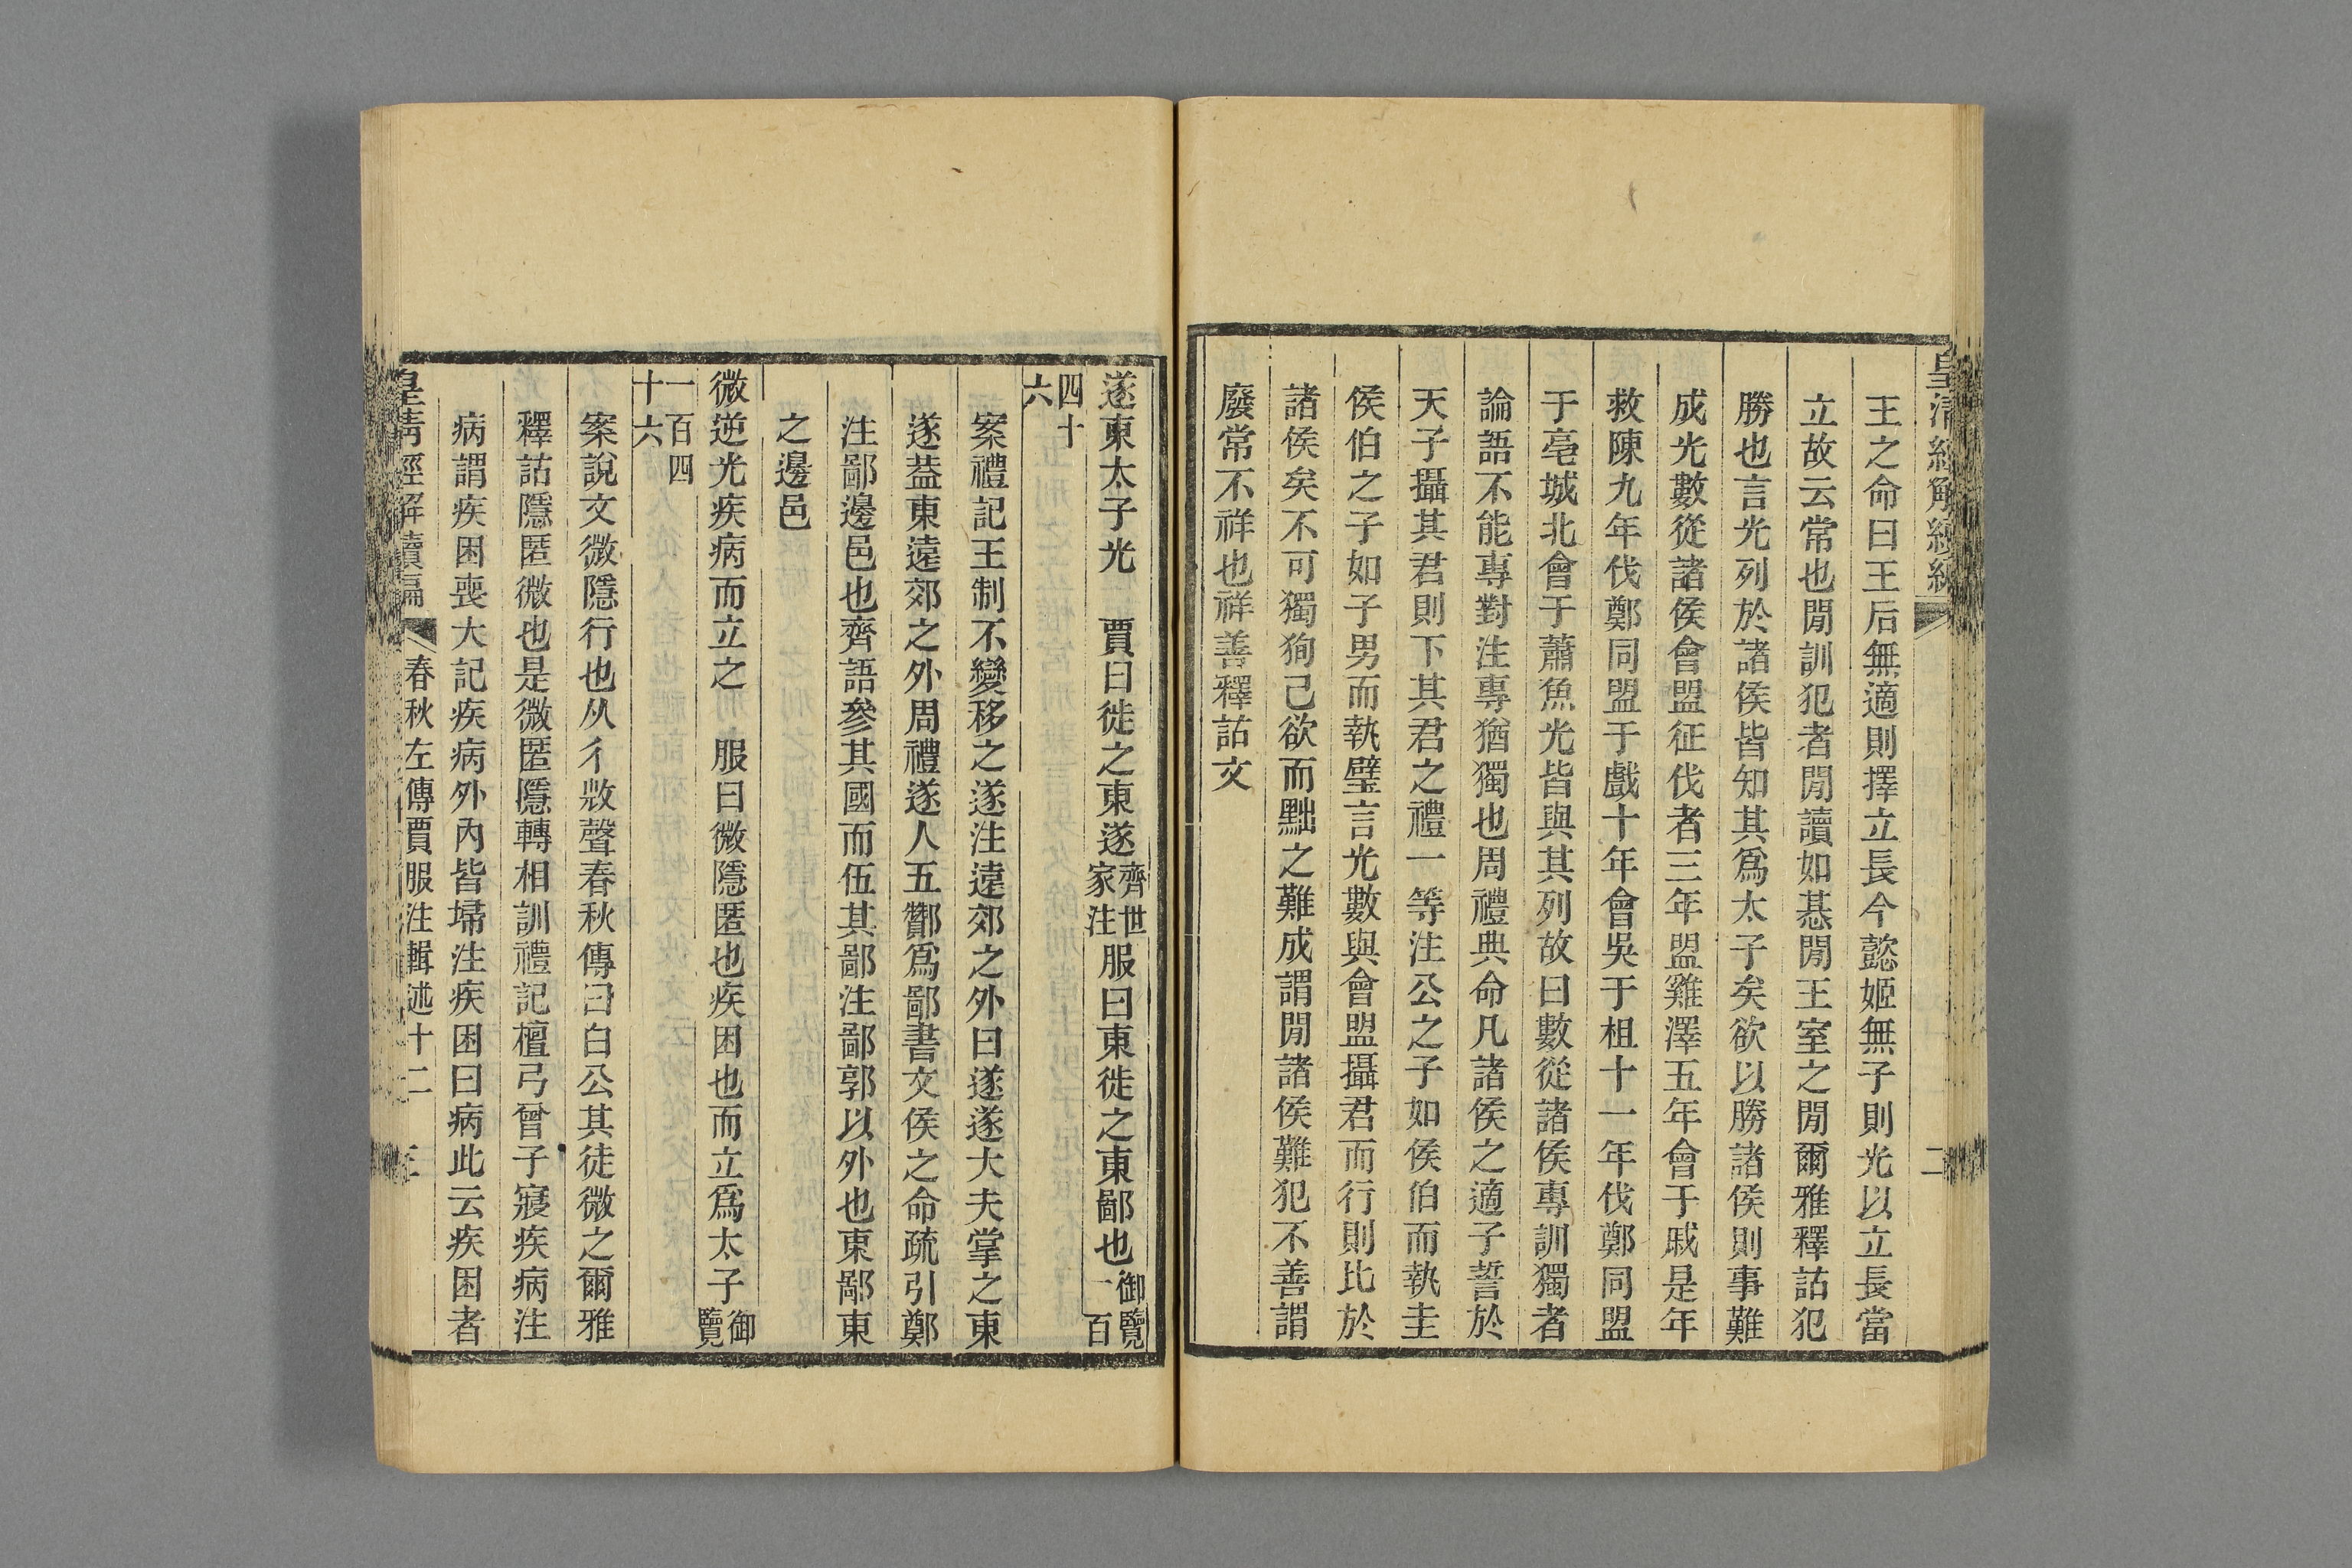 皇清經解續編
二
王之命曰王后無適則擇立長今懿姬無子則光以立長當
立故云常也閒訓犯者閒讀如惎閒王室之閒爾雅釋詁犯
勝也言光列於諸侯皆知其爲太子矣欲以勝諸侯則事難
成光數從諸侯會盟征伐者三年盟雞澤五年會于戚是年
救陳九年伐鄭同盟于戲十年會吳于柤十一年伐鄭同盟
于亳城北會于蕭魚光皆與其列故曰數從諸侯專訓獨者
論語不能專對注專猶獨也周禮典命凡諸侯之適子誓於
天子攝其君則下其君之禮一等注公之子如侯伯而執圭
侯伯之子如子男而執璧言光數與會盟攝君而行則比於
諸侯矣不可獨狥己欲而黜之難成謂閒諸侯難犯不善謂
廢常不祥也祥善釋詁文
遂東太子光　賈曰徙之東遂齊世家注服曰東徙之東鄙也御覽一百
四十六
案禮記王制不變移之遂注遠郊之外曰遂遂大夫掌之東
遂葢東遠郊之外周禮遂人五酇爲鄙書文侯之命疏引鄭
注鄙邊邑也齊語參其國而伍其鄙注鄙郭以外也東鄙東
之邊邑
微逆光疾病而立之　服曰微隱匿也疾困也而立爲太子御覽
一百四十六
案說文微隱行也从彳𢼸聲春秋傳曰白公其徒微之爾雅
釋詁隱匿微也是微匿隱轉相訓禮記檀弓曾子寢疾病注
病謂疾困喪大記疾病外內皆埽注疾困曰病此云疾困者
皇清經解續編
春秋左傳賈服注輯述十二